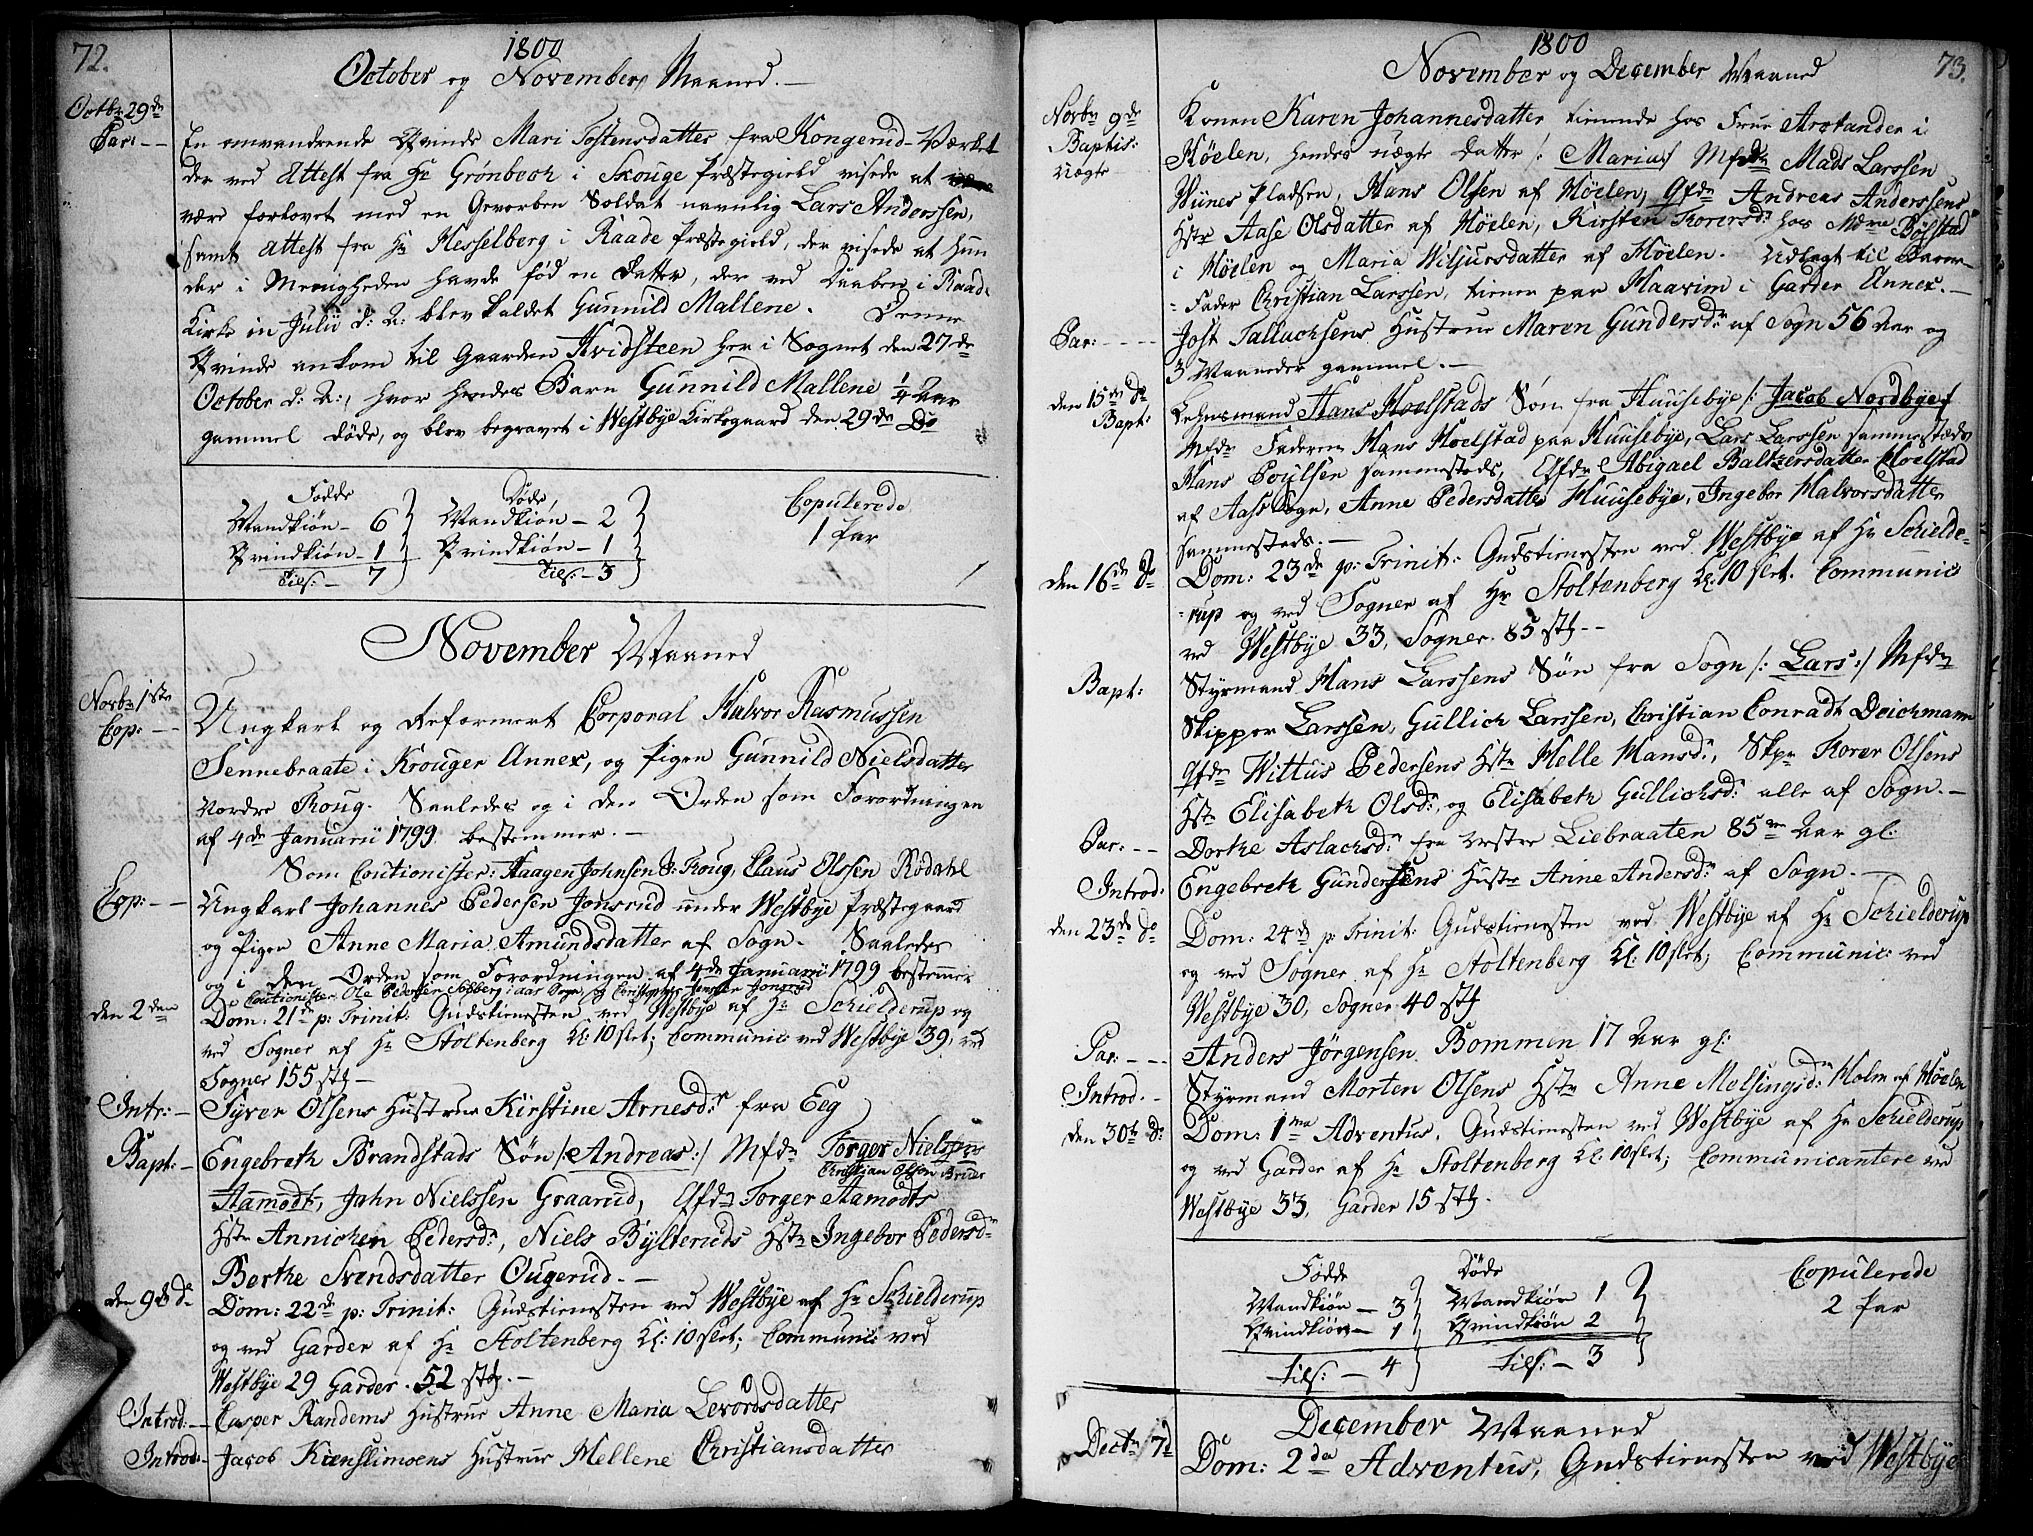 72.
1800
October og November Maaned. —
Octbr 29de
Par: — En omvandrende Qvinde Mari Tostensdatter fra Kongerud-Værket
der ved Attest fra Hr Grønbech i Skouge Præstegield visede at
være forlovet med en Geworben Soldat navnlig Lars Anderssen,
samt Attest fra Hr Hesselberg i Raade Præstegield, der visede at hun
der i Menigheden havde fød en Datter, der ved Daaben i Raade
Kirke in Julii d: A: blev kaldet Gunnild Mallene. Denne
Qvinde ankom til Gaarden Hvidsteen her i Sognet den 27de
October d: A:, hvor hendes Barn Gunnild Mallene ¼ Aar
gammel døde, og blev begravet i Westbye Kirkegaard den 29de Do
Fødde Døde Copulerede
Mandkiøn — 6 Mandkiøn — 2 1 Par
Qvindkiøn — 1 Qvindkiøn — 1
Tils: — 7 Tils: — 3
November Maaned
Novbr 1ste
Cop: — Ungkarl og Reformert Corporal Halvor Rasmussen
Sennebraate i Krouger Annex, og Pigen Gunnild Nielsdatter
Nordre Roug. Saaledes og i den Orden som Forordningen
af 4de Januarii 1799 bestemmer. —
Som Coutionister: Haagen Johnsen S: Roug, Claus Olssen Rødahl
Cop: — Ungkarl Johannes Pedersen Jonsrud under Westbye Præstegaard
og Pigen Anne Maria Amundsdatter af Sogn. Saaledes
og i den Orden som Forordningen af 4de Januarii 1799 bestemmer
Coutionister Ole Pedersen Solberg i Aas Sogn, og Christopher Jensen Jonsrud
den 2den Dom: 21de p: Trinit: Gudstienesten ved Westbye af Hr Schielderup og
ved Sogner af Hr Stoltenberg Kl: 10 slet; Communic: ved Westbye 39, ved
Sogner 155 stk —
Intr: — Syver Olsens Hustrue Kirstine Arnesdr fra Eeg
Bapt: — Engebreth Brandstads Søn /: Andreas :/ Mfdr Torger Nielsens
Christian Olsen Brevig
Aamodt, John Nielssen Graarud, Qfdr Torger Aamodts
Hstr Annichen Pedersdr, Niels Bylteruds Hstr Ingebor Pedersdr
Berthe Svendsdatter Ougerud. —
den 9de do Dom: 22de p: Trinit: Gudstienesten ved Westbye af Hr Schielderup
og ved Garder af Hr Stoltenberg Kl: 10 slet; Communic: ved
Westbye 29 Garder 52 stk. —
Introd: — Casper Randems Hustrue Anne Maria Levordsdatter
Introd: — Jacob Kienslimoens Hustrue Mellene Christiansdatter
1800
November og December Maaned
73.
Novbr 9de
Baptis:
uægte
Konen Karen Johannesdatter tienende hos Frue Arotander i
Høelen, hendes uægte Datter /: Maria :/ Mfdr Mads Larssen
Wiines Pladsen, Hans Olsen af Høelen, Qfdr Andreas Anderssens
Hstr Aase Olsdatter af Høelen, Kirsten Torersdr hos Mdme Bølstad
i Høelen og Maria Wiljursdatter af Høelen. Udlagt til Barne-
- Fader Christian Larssen, tiener paa Haavim i Garder Annex. —
Par: — Jost Tallachsens Hustrue Maren Gundersdr af Sogn 56 Aar og
3 Maaneder gammel. —
den 15de do
Bapt: Lehnsmand Hans Hoelstads Søn fra Huusebye /: Jacob Nordbye :/
Mfdr Faderen Hans Hoelstad paa Huusebye, Lars Larssen sammesteds
Hans Poulsen sammesteds, Qfdr Abigael Baltzersdatter Hoelstad
af Aas Sogn, Anne Pedersdatter Huusebye, Ingebor Halvorsdatter
sammesteds. —
den 16de do Dom: 23de p: Trinit: Gudstienesten ved Westbye af Hr Schielde-
-rup og ved Sogner af Hr Stoltenberg Kl: 10 slet. Communic
ved Westbye 33, Sogner 85 stk —
Bapt: Styrmand Hans Larssens Søn fra Sogn /: Lars :/ Mfdr
Skipper Larssen, Gullich Larssen, Christian Conradt Deichmann
Qfdr Wittus Pedersens Hstr Helle Hansdr, Skpr Torer Olsens
Hstr Elisabeth Olsdr, og Elisabeth Gullichsdr alle af Sogn. —
Par: — Dorthe Aslachsdr fra Vestre Liebraaten 85 Aar gl:
Introd: Engebreth Gundersens Hustr Anne Andersdr af Sogn. —
den 23de do Dom: 24de p Trinit: Gudstienesten ved Westbye af Hr Schielderup
og ved Sogner af Hr Stoltenberg Kl: 10 slet; Communic: ved
Westbye 30, Sogner 40 stk
Par: — Anders Jörgensen Bommen 17 Aar gl:
Introd. — Styrmand Morten Olsens Hstr Anne Melsingsdr Holm af Høelen
den 30te do: Dom: 1ma Adventus. Gudstienesten ved Westbye af Hr Schielderup
og ved Garder af Hr Stoltenberg Kl: 10 slet; Communicantere ved
Westbye 33, Garder 15 stk.
Fødde Døde Copulerede
Mandkiøn — 3 Mandkiøn 1 2 Par
Qvindkiøn — 1 Qvindkiøn 2
Tils: — 4 Tils: — 3
December Maaned
Decbr 7de Dom: 2da Adventus, Gudstienesten ved Westbye